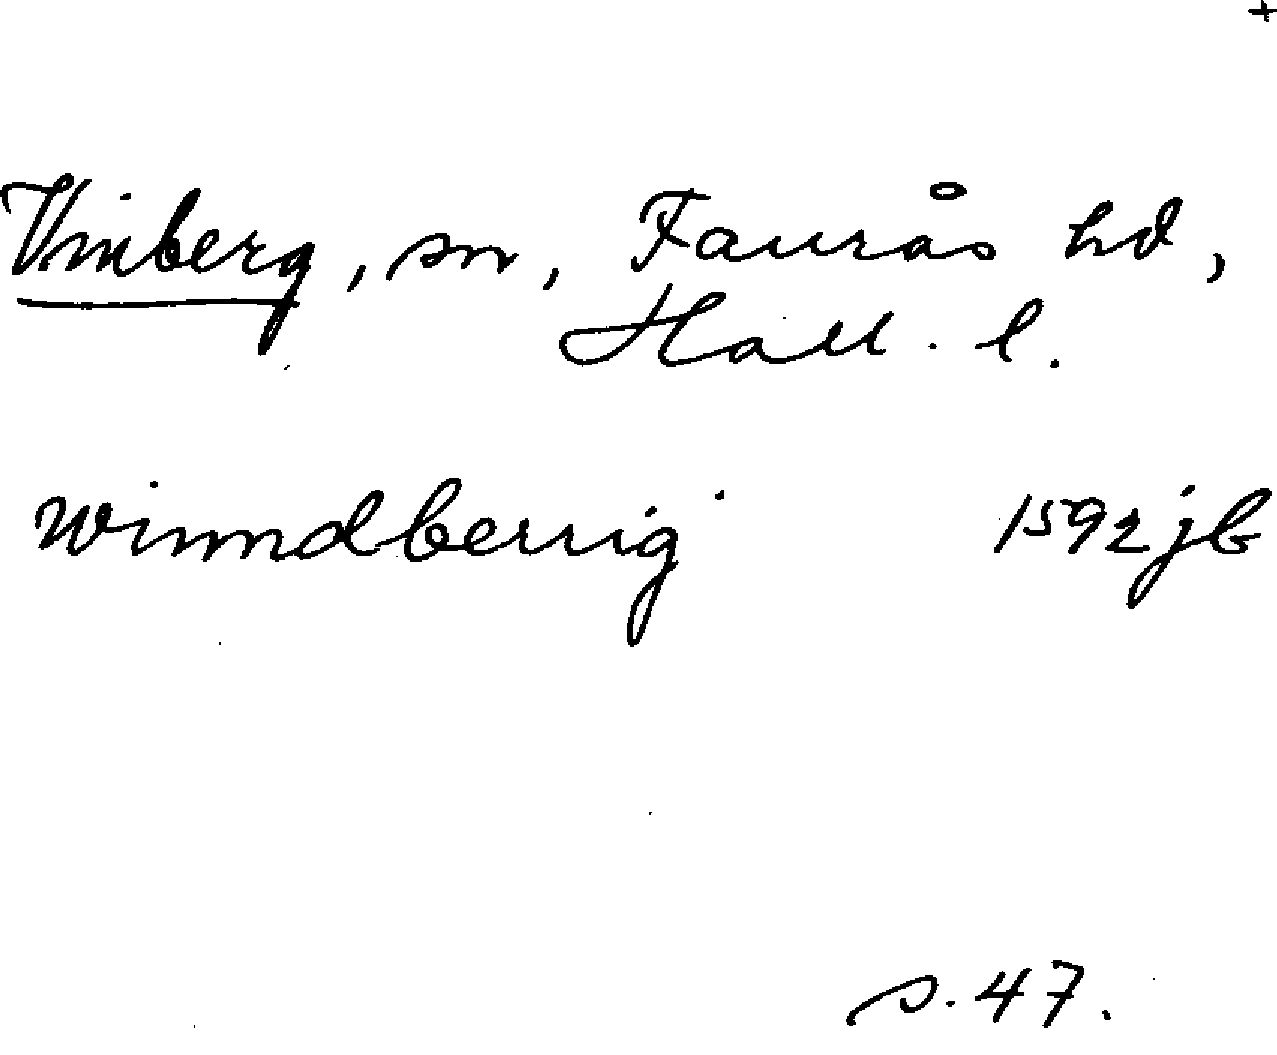 +
Vinberg, sn, Faurås hd,
Hall. l.
Winndberrig 1592 jb
s. 47.